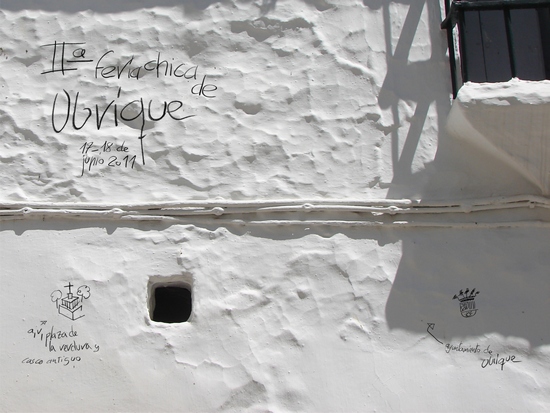 IIª feria chica de
Ubrique
17-18 de
junio 2011
plaza de
la verdura y
casco antiguo
ayuntamiento de
ubrique